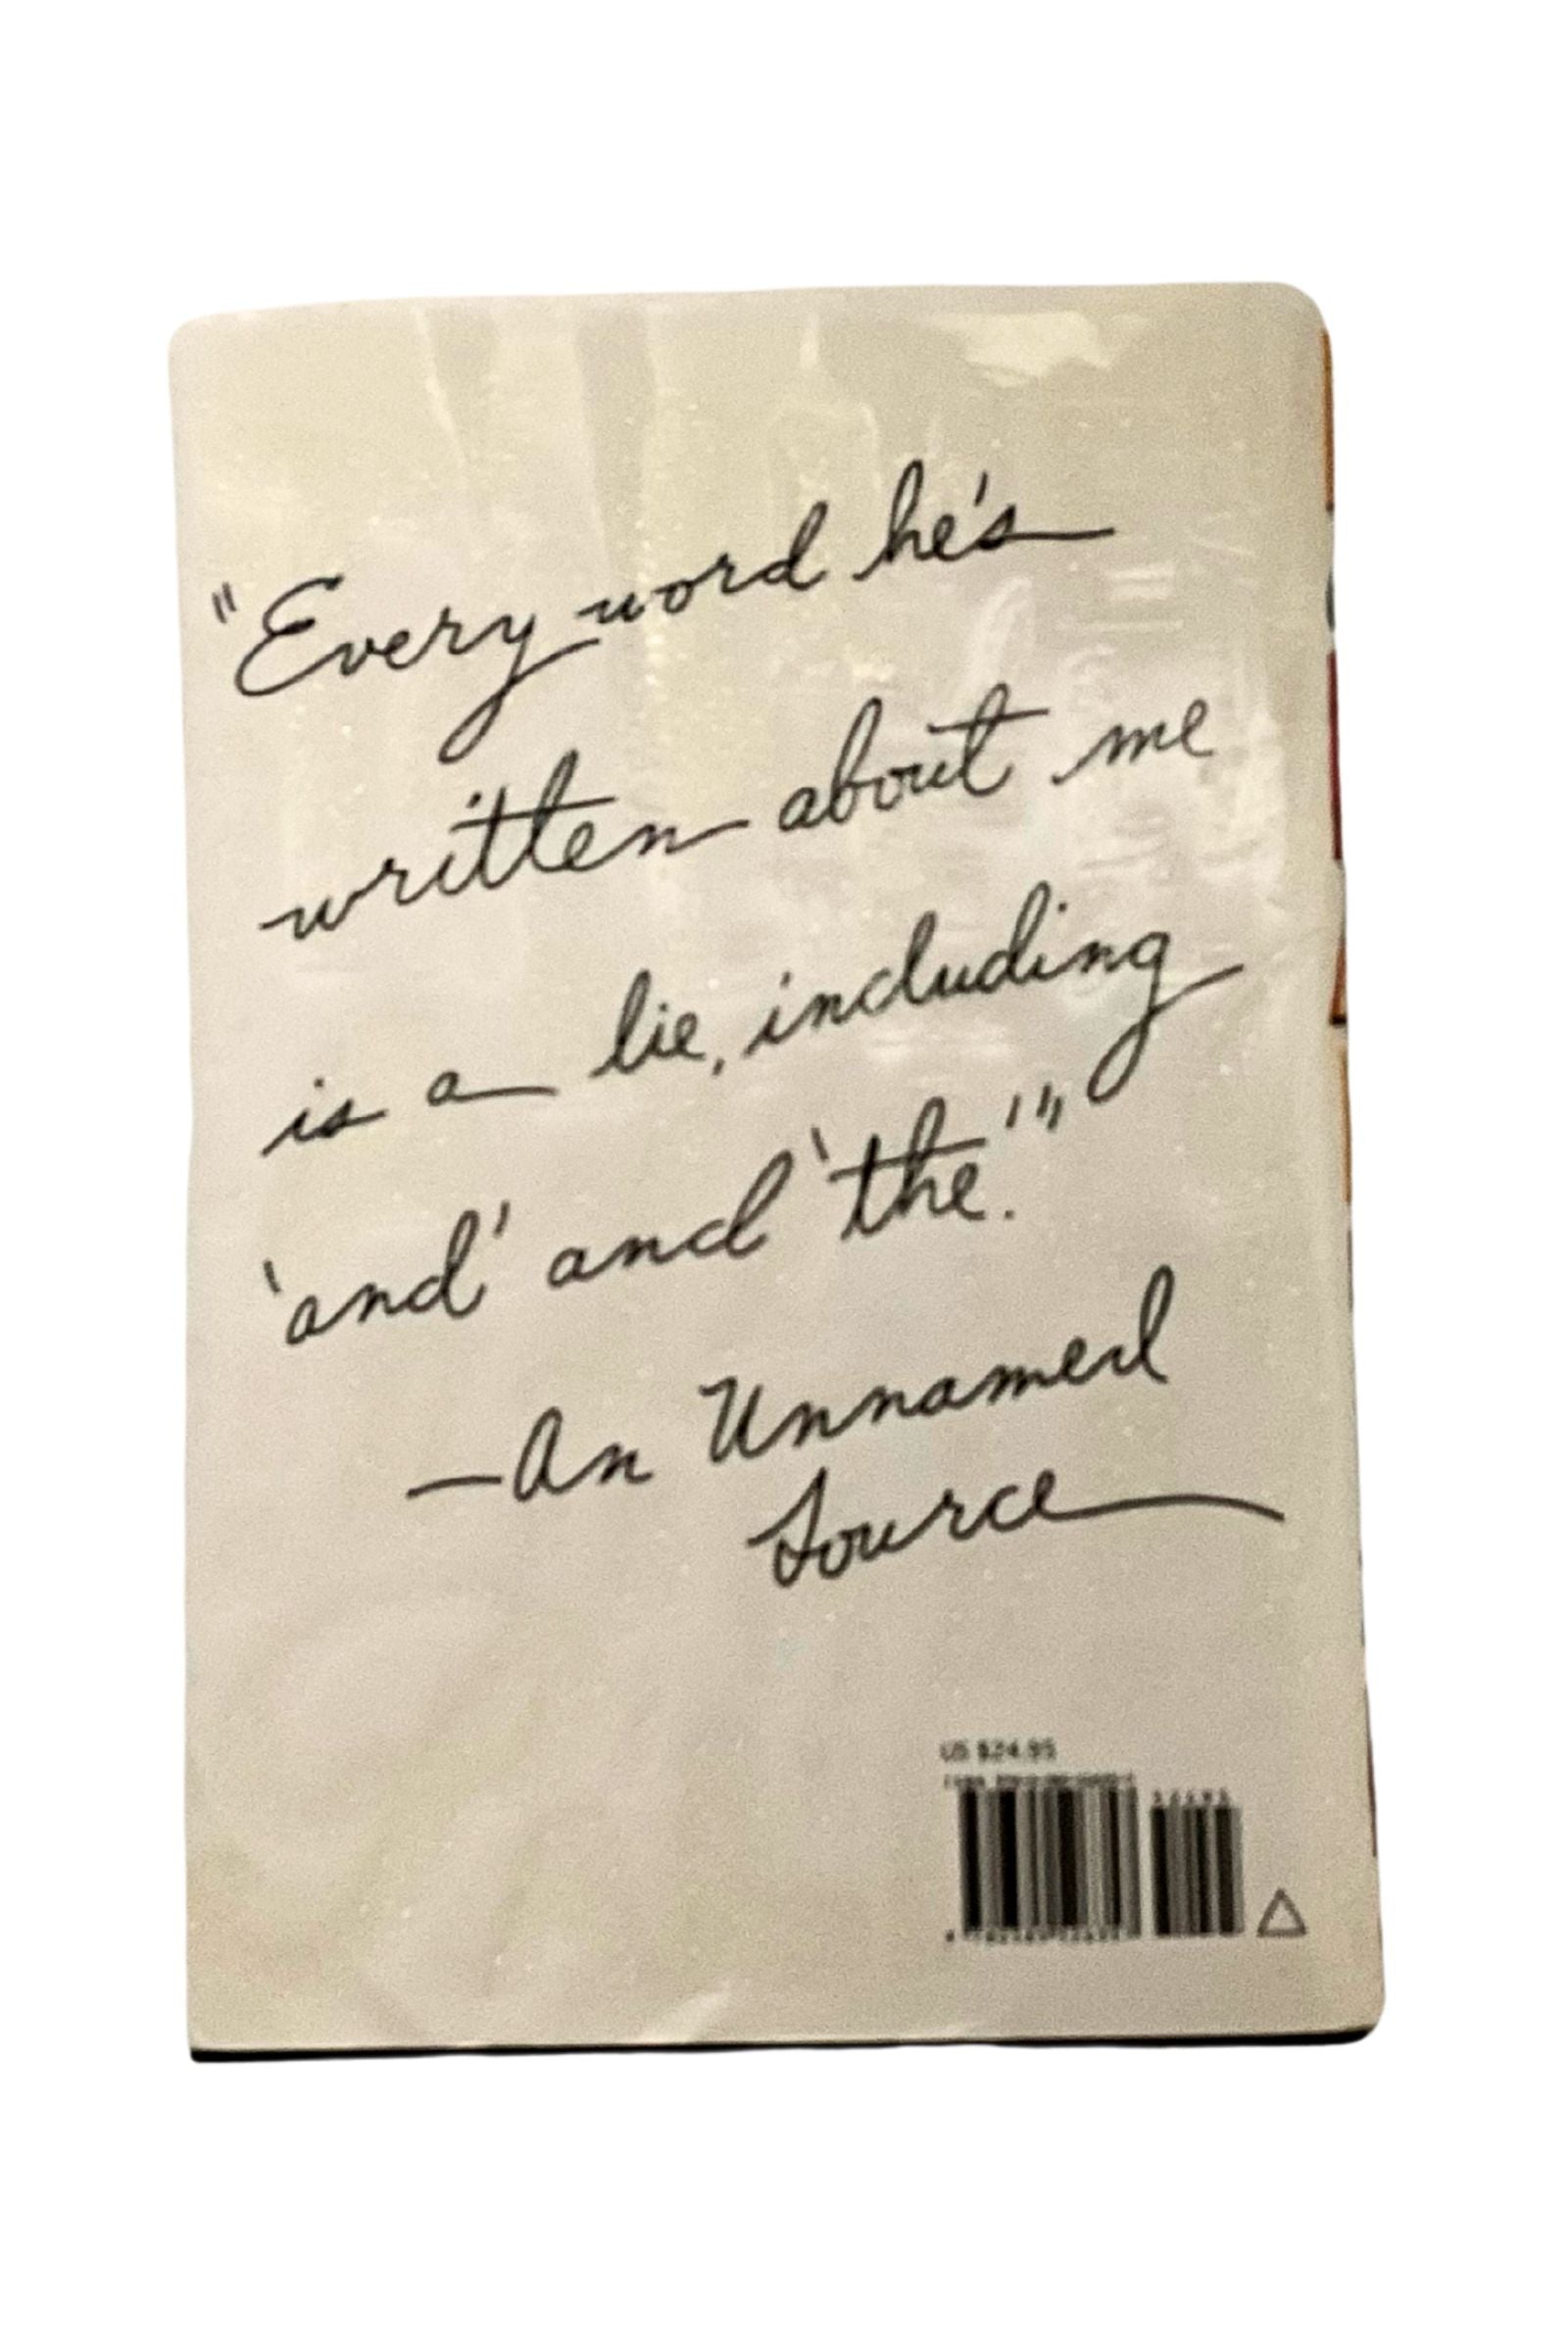 "Every word he's
written about me
is a lie, including
'and' and 'the.'"
—An Unnamed
Source
US $24.95